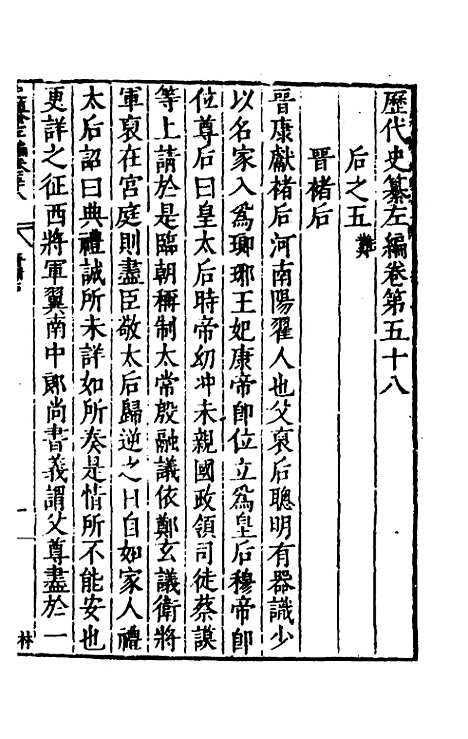 歷代史纂左編卷第五十八
后之五
晋褚后
晋康獻褚后河南陽翟人也父裒后聰明有器識少
以名家入爲瑯琊王妃康帝卽位立爲皇后穆帝卽
位尊后曰皇太后時帝幼冲未親國政領司徒蔡謨
等上請於是臨朝稱制太常殷融議依鄭玄議衛將
軍裒在宮庭則盡臣敬太后歸逆之日自如家人禮
太后詔曰典禮誠所未詳如所奏是情所不能安也
更詳之征西將軍翼南中郎尚書義謂父尊盡於一
林